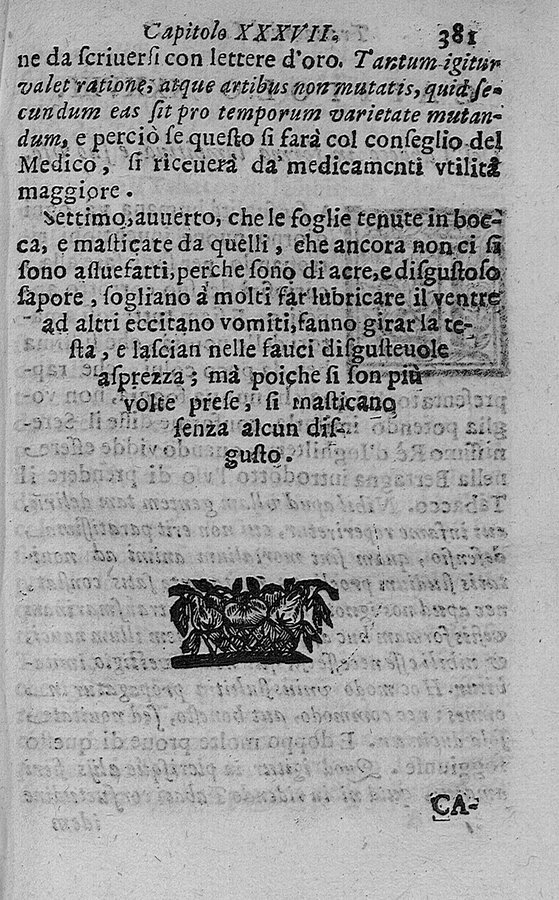 Capitolo XXXVII. 381
ne da ſcriuerſi con lettere d'oro. Tantum igitur
valet ratione, atque artibus non mutatis, quid ſe-
cundum eas ſit pro temporum varietate mutan-
dum, e perciò ſe queſto ſi farà col conſeglio del
Medico, ſi riceuerà da' medicamenti vtilità
maggiore.
Settimo, auuerto, che le foglie tenute in boc-
ca, e maſticate da quelli, che ancora non ci ſi
ſono aſſuefatti, perche ſono di acre, e diſguſtoſo
ſapore, ſogliano à molti far lubricare il ventre
ad altri eccitano vomiti, fanno girar la te-
ſta, e laſcian nelle fauci diſguſteuole
aſprezza; mà poiche ſi ſon più
volte preſe, ſi maſticano
ſenza alcun diſ-
guſto.
CA-